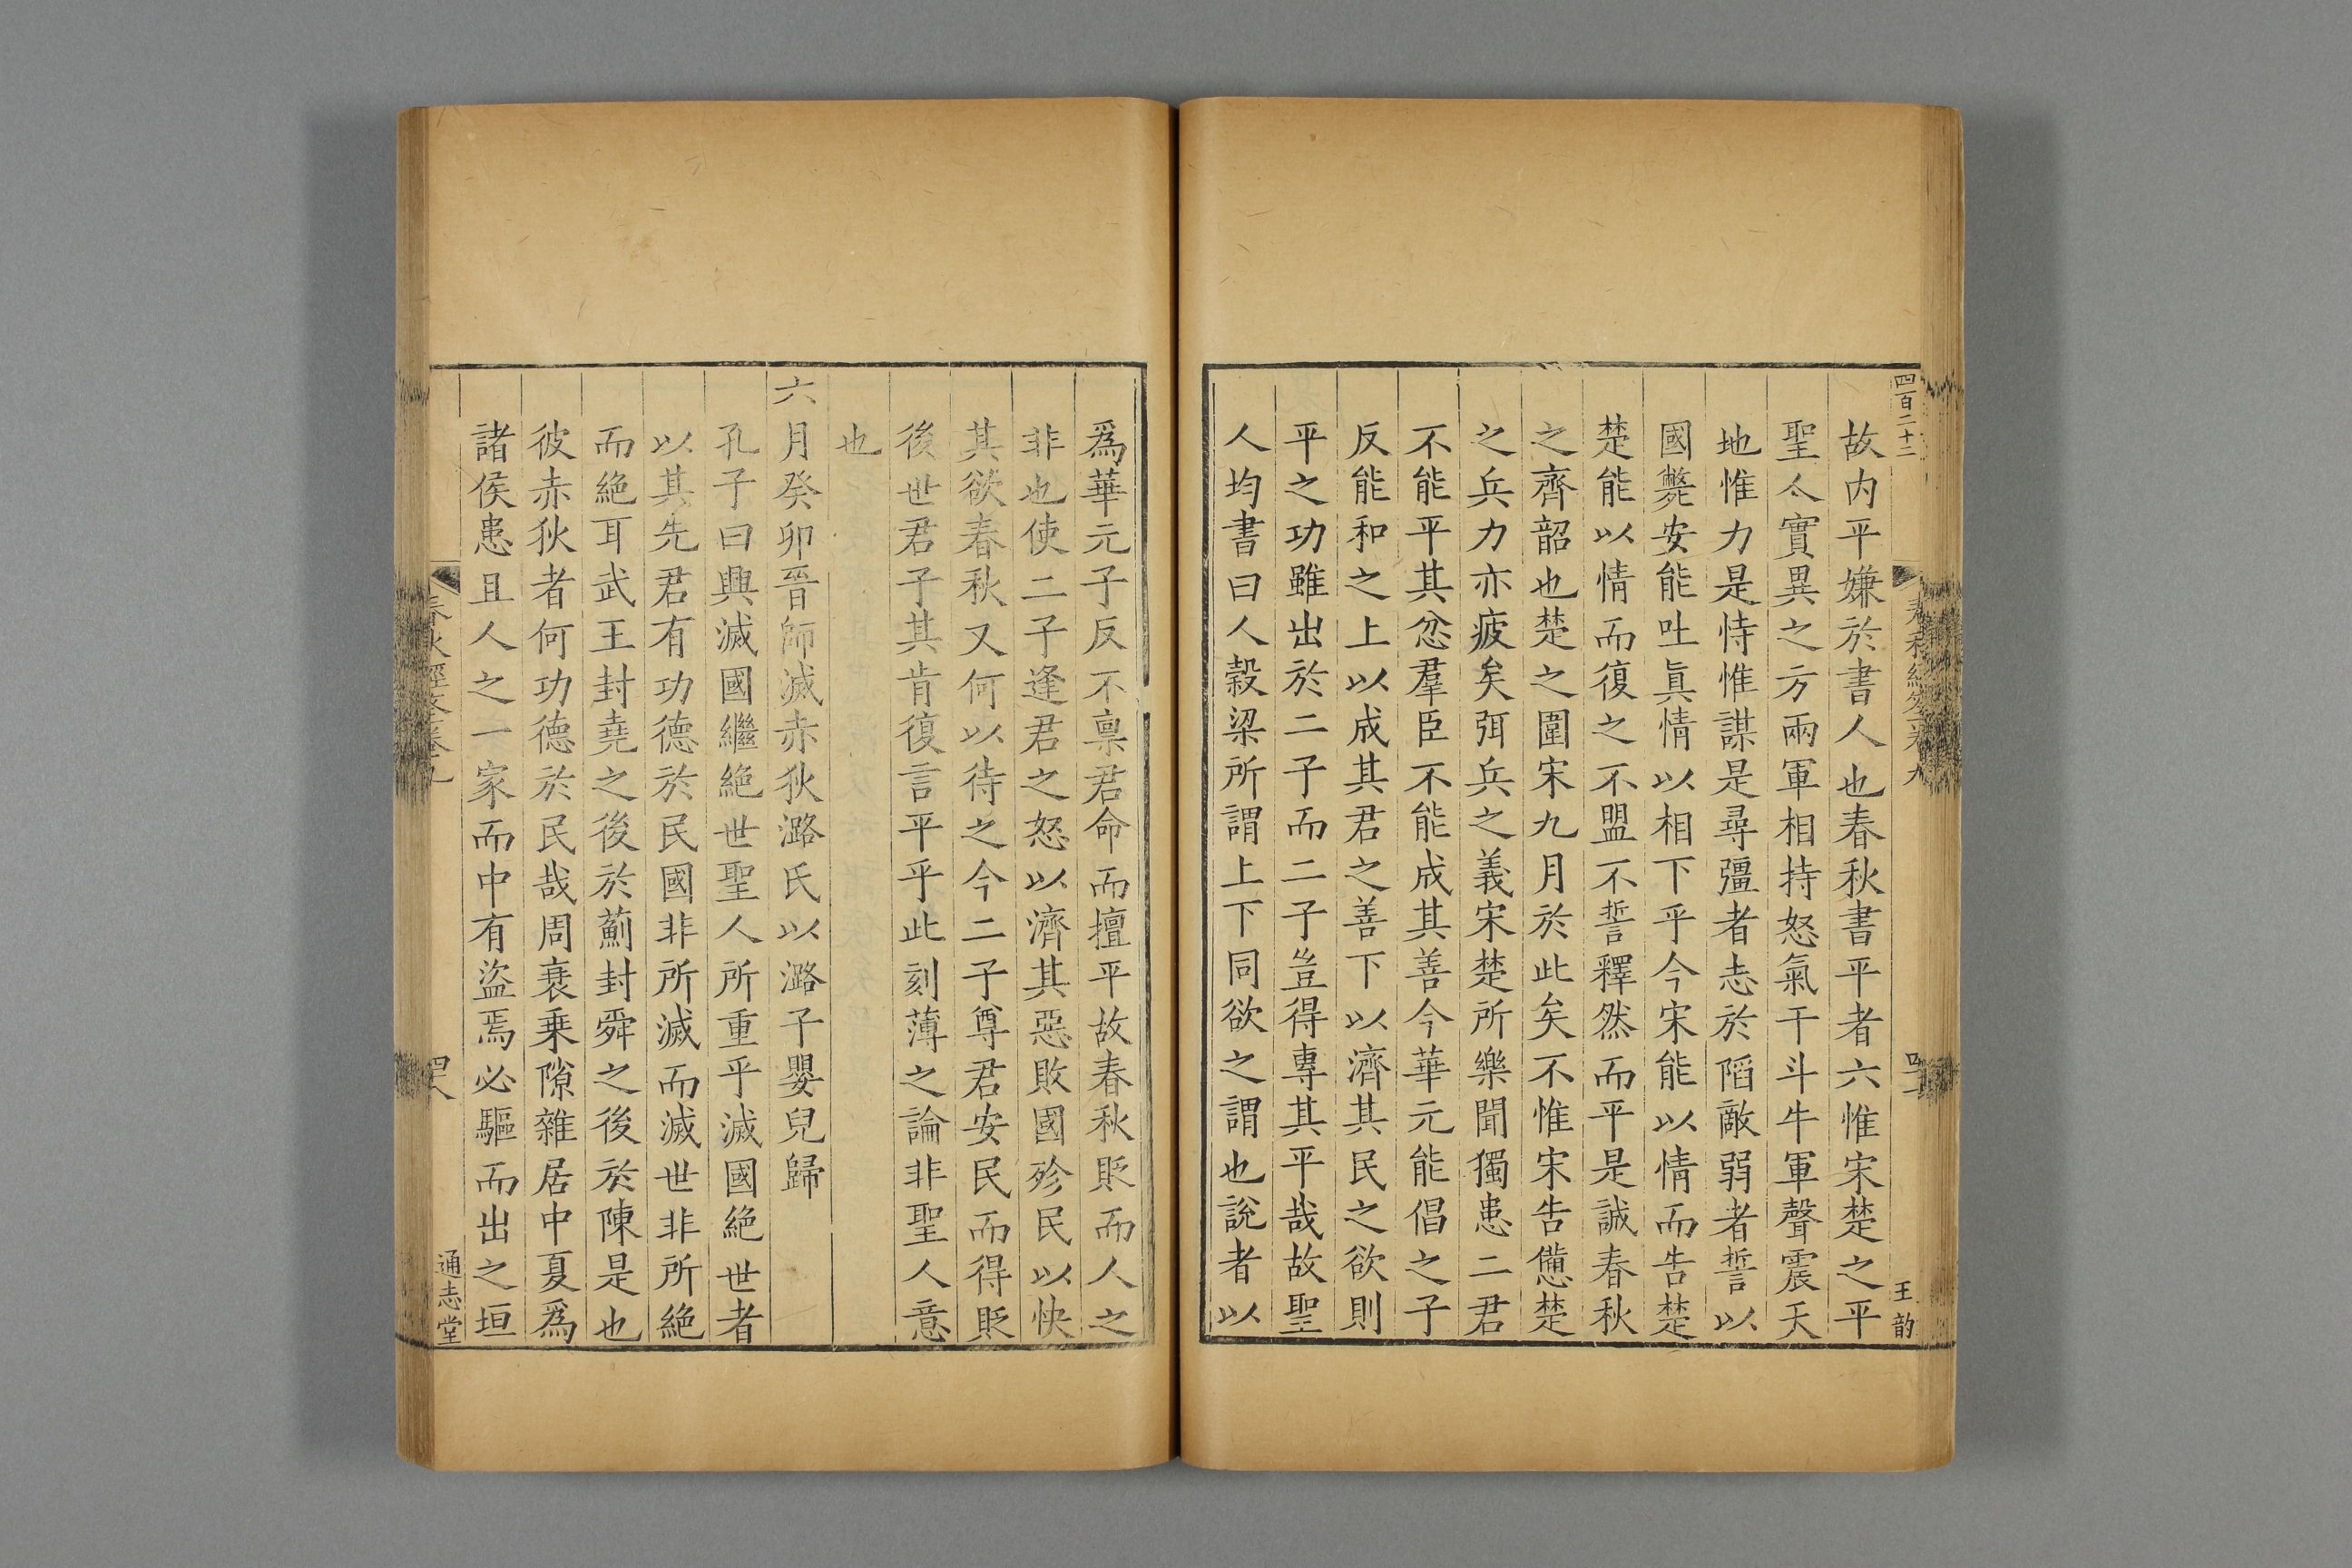 四百二十二
王韵
故内平嫌於書人也春秋書平者六惟宋楚之平
聖人實異之方兩軍相持怒氣干斗牛軍聲震天
地惟力是恃惟謀是尋彊者志於䧟敵弱者誓以
國斃安能吐眞情以相下乎今宋能以情而告楚
楚能以情而復之不盟不誓釋然而平是誠春秋
之齊韶也楚之圍宋九月於此矣不惟宋告憊楚
之兵力亦疲矣弭兵之義宋楚所樂聞獨患二君
不能平其忿羣臣不能成其善今華元能倡之子
反能和之上以成其君之善下以濟其民之欲則
平之功雖出於二子而二子豈得專其平哉故聖
人均書曰人穀梁所謂上下同欲之謂也說者以
爲華元子反不禀君命而擅平故春秋貶而人之
非也使二子逢君之怒以濟其惡敗國殄民以快
其欲春秋又何以待之今二子尊君安民而得貶
後世君子其肯復言平乎此刻薄之論非聖人意
也
六月癸卯晉師滅赤狄潞氏以潞子嬰兒歸
孔子曰興滅國繼絶世聖人所重乎滅國絶世者
以其先君有功德於民國非所滅而滅世非所絶
而絶耳武王封堯之後於薊封舜之後於陳是也
彼赤狄者何功德於民哉周衰乗隙雜居中夏爲
諸侯患且人之一家而中有盜焉必驅而出之垣
通志堂